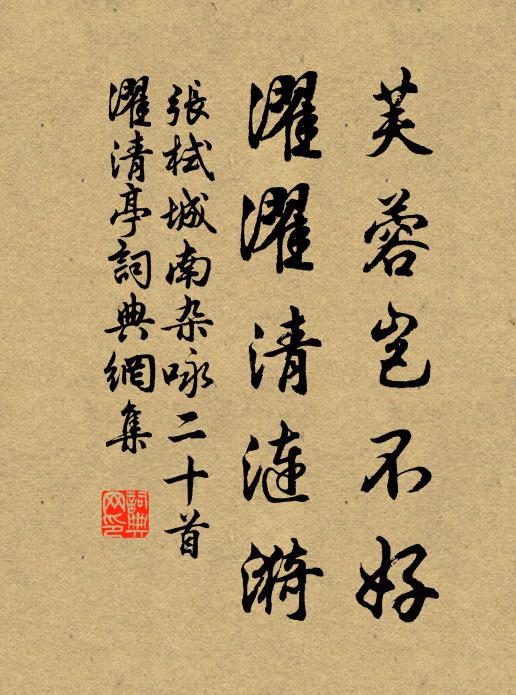 芙蓉岂不好
濯濯清涟漪
張栻城南杂咏二十首
濯清亭詞典網集
詞典
网印